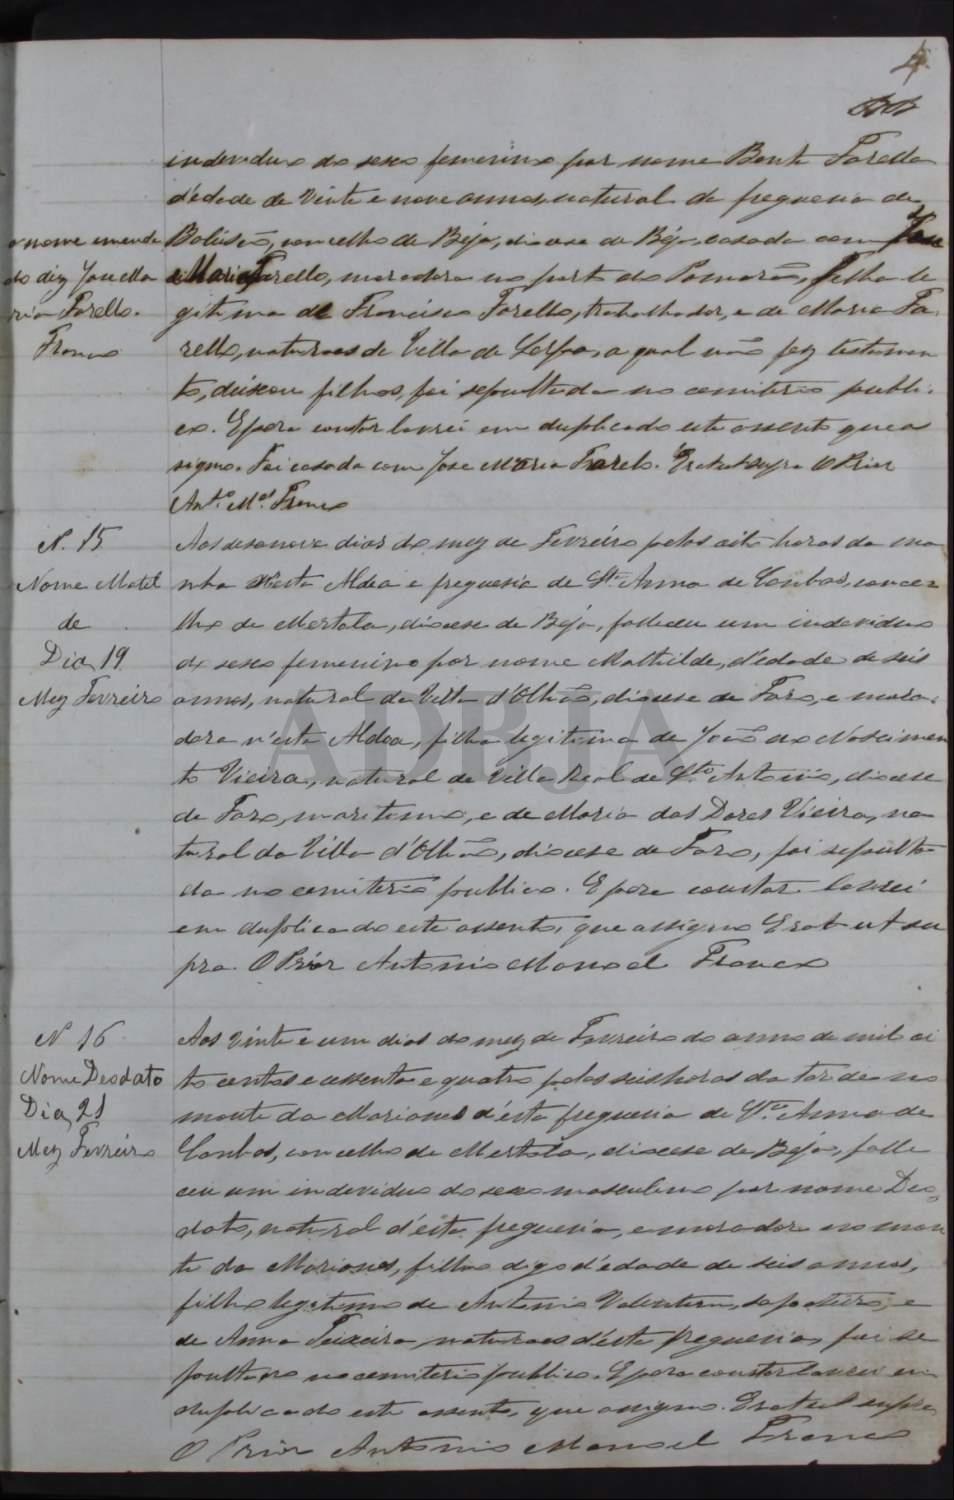 4
individuo do sexo femenino por nome Bente Farello
d'édade de vinte e nove annos, natural da freguesia de
o nome emenda
do diz Jose Ma
ria Farello.
Franco
concelho de Béja, diocese de Béja, casada com Jose
Maria Farello, moradora no porto do Pomarão, filha le
gitima de Francisco Farello, trabalhador, e de Maria Fa-
rello, naturaes de Villa de Serpa, a qual não fez testamen
to, deixou filhos, foi sepultada no cemiterio publi-
co. E para constar lavrei em duplicado este assento que as
signo. Foi casada com Jose Maria Farelo. Era ut supra O Prior
Antº. Mel. Franco
N. 15
Nome Matil
de
Dia 19
Mez Fevreiro
Aos desanove dias do mez de Fevreiro pelas oito horas da ma
nha n'esta Aldea e freguesia de Stª Anna de Cambas, conce
lho de Mertola, diocese de Béja, falleceu um individuo
do sexo femenino por nome Mathilde, d'édade de seis
annos, natural da Villa d'Olhão, diocese de Faro, e mora-
dora n'esta Aldea, filha legitima de João do Nascimen
to Vieira, natural de Villa Real de Stº Antonio, diocese
de Faro, maritimo, e de Maria das Dores Vieira, na
tural da Villa d'Olhão, diocese de Faro, foi sepulta
da no cemiterio publico. E para constar lavrei
em duplicado este assento, que assigno Era ut su
pra. O Prior Antonio Manoel Franco
N 16
Nome Deodato
Dia 21
Mez Fevreiro
Aos vinte e um dias do mez de Fevreiro do anno de mil oi
to centos e sessenta e quatro pelas seis horas da tarde no
monte da Marianes d'esta freguesia de Stª. Anna de
Cambas, concelho de Mertola, diocese de Béja, falle
ceu um individuo do sexo masculino por nome Deo
dato, natural d'esta freguesia, e morador no mon
te da Marianes, filho digo d'édade de seis annos,
filho legitimo de Antonio Valentim, sapateiro, e
de Anna Teixeira, naturaes d'esta freguesia, foi se
pultado no cemiterio publico. E para constar lavrei em
duplicado este assento, que assigno. Era ut supra
O Prior Antonio Manoel Franco
ADBJA